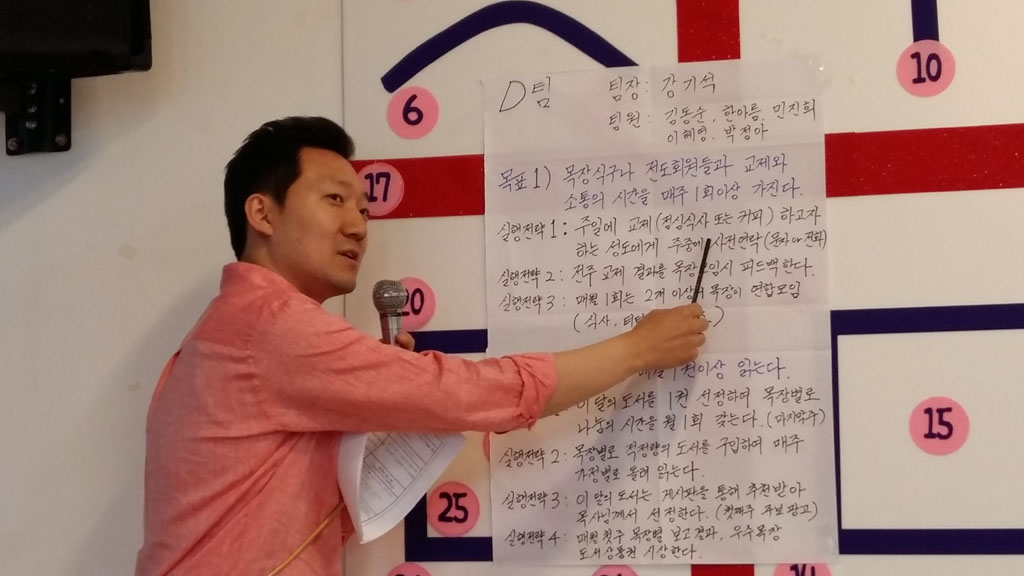 D팀 팀장: 강기석
팀원: 김동순, 한아름, 민진희
이혜영, 박정아
목표1) 목장식구나 전도회원들과 교제와
소통의 시간을 매주 1회이상 가진다.
실행전략1: 주일에 교제(점심식사 또는 커피) 하고자
하는 성도에게 주중에 사전연락(문자 or 전화)
실행전략 2: 전주 교제 결과를 목장모임시 피드백한다.
실행전략 3: 매월 1회는 2개 이상의 목장이 연합모임
(식사,
1권이상 읽는다.
이달의 도서를 1권 선정하여 목장별로
나눔의 시간을 월 1회 갖는다. (마지막주)
실행전략 2: 목장별로 적정량의 도서를 구입하여 매주
가정별로 돌려 읽는다.
실행전략 3: 이달의 도서는 게시판을 통해 추천받아
목사님께서 선정한다. (첫째주 주보 광고)
실행전략 4: 매월 첫주 목장별 보고결과, 우수목장
도서상품권 시상한다.
6
10
17
20
15
25